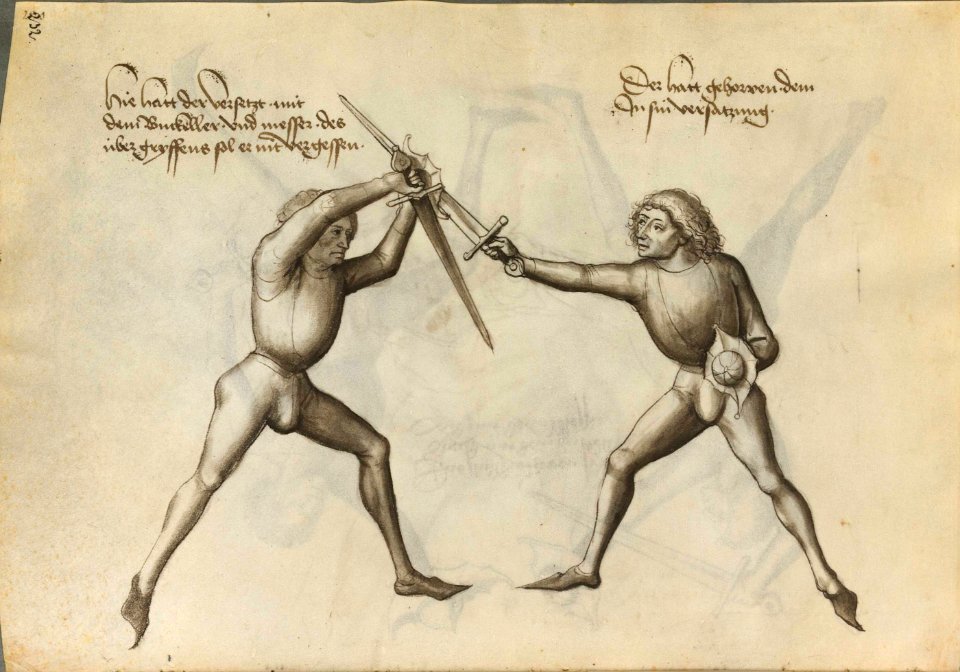 Hie hatt der versetzt mit
dem Buckeller vnd messer des
über gryffens sol er nit vergessen.
Der hatt gehowen dem
In sin versatzung.